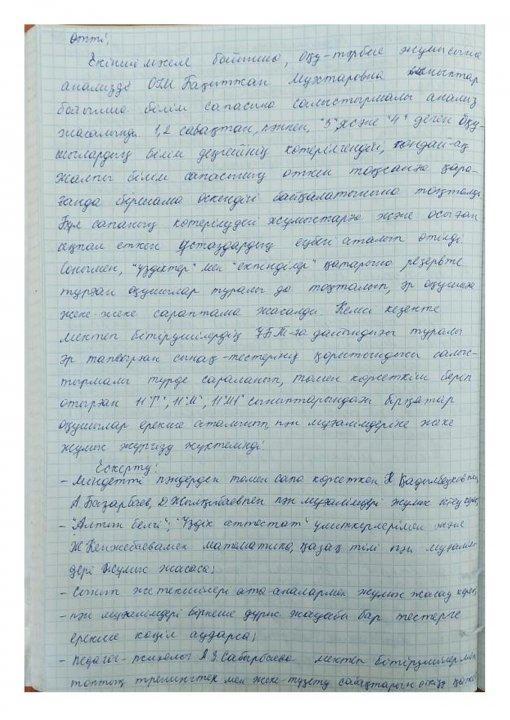 өтті.
Екінші мәселе бойынша, Оқу-тәрбие жұмысына
анализді ОІМ Бақытжан Мұхтаровна сыныптар
бойынша білім сапасына салыстырмалы анализ
жасалынды. 1,2 сабақтан, пәннен, "5" және "4" деген Оқу-
шылардың білім деңгейінің көтерілгендей, қандай-ақ
жалпы білім сапасының өткен тоқсанға қара-
ғанда біршама өскендігі байқалатынына тоқталды.
Бұл сапаның көтерілудей жұмыстарға және осыған
ықпал еткен ұстаздардың еңбегі аталып өтілді.
Сонымен, "үздіктер" мен "екпінділер" қатарына резервте
тұрған оқушылар туралы да тоқталып, әр оқушыға
жеке-жеке сараптама жасалды. Келесі кезекте
мектеп бітірушілердің ҰБТ-ға дайындығы туралы
әр тапсырған сынақ-тестерінің қорытындысы салыс-
тырмалы түрде сараланып, төмен көрсеткіш беріп
отырған 11"Г", 11"М" сыныптарындағы бірқатар
оқушылар ерекше аталынып, пән мұғалімдеріне жеке
жұмыс жүргізу жүктелінді.
Ескерту:
- Міндетті пәндерден төмен сапа көрсеткен
А. Базарбаев, пән мұғалімдері жұмыс
- "Алтын белгі", "Үздік аттестат" үміткерлерімен және
Ж Кенжебаевамен математика, қазақ тілі пән мұғалім-
дері жұмыс жасаса;
- Сынып жетекшілері ата-аналармен жұмыс жасау керек;
- пән мұғалімдері бірнеше дұрыс жауабы бар тестерге
ерекше көңіл аударса;
- педагог-психолог А З Сабырбаева мектеп бітірушілермен
топтық тренингтек мен жеке-түзету сабақтарын өткізу қажет